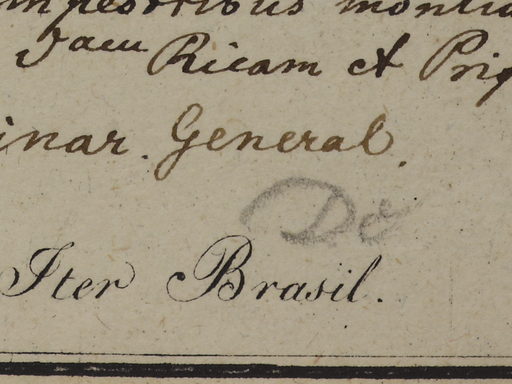 campestribus montiu
Vacu Ricam et Prig
inar. General.
Do
Iter Brasil.